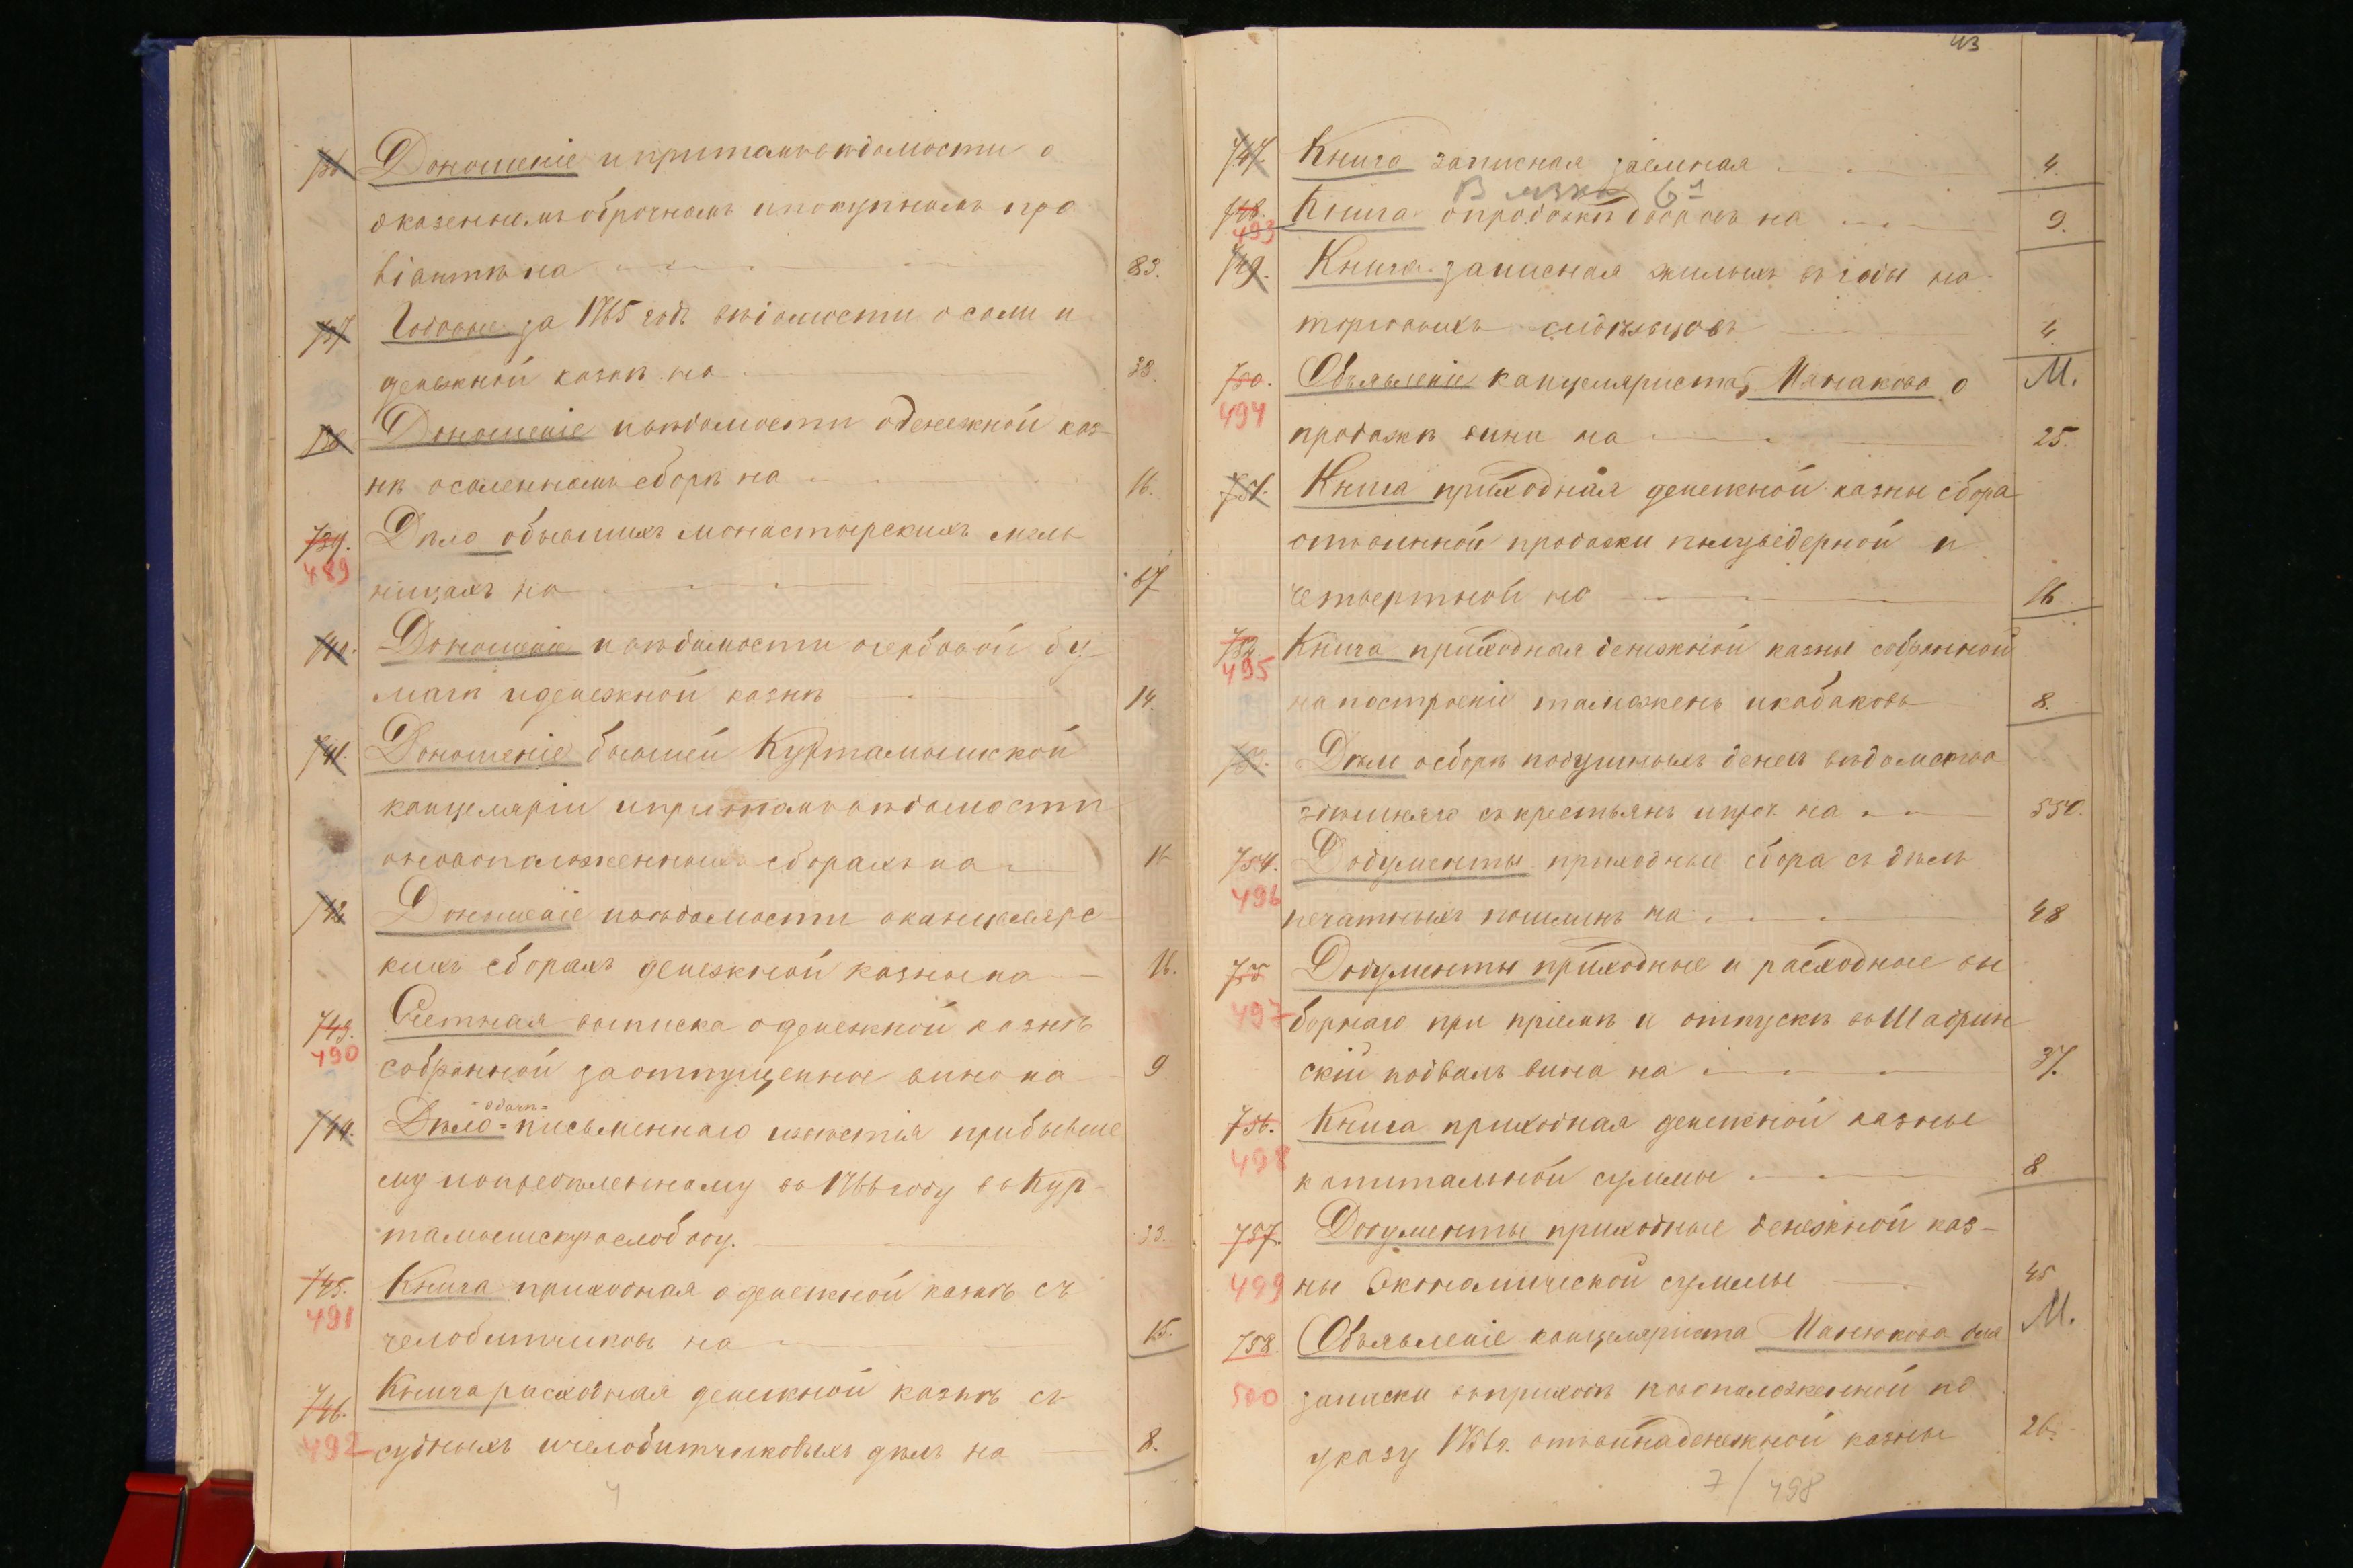 736. Доношеніе и притомъ вѣдомости о
оказенномъ оброчномъ и покупномъ про
віантѣ на 83.
737. Годовые за 1765 годъ вѣдомости о соли и
денежной казнѣ на 38.
738. Доношеніе и вѣдомости о денежной каз
нѣ о соленномъ сборѣ на 16.
739. Дѣло о бывшихъ монастырскихъ мель
489
ницахъ на 67
740. Доношеніе и вѣдомости о гербовой бу
маги и денежной казнѣ 14.
741. Доношеніе бывшей Куртамышской
канцеляріи и притомъ вѣдомости
о новоположенныхъ сборахъ на 16
742. Доношеніе и вѣдомости о канцелярс
кихъ сборахъ денежной казны на 16.
743. Счетная выписка о денежной казнѣ
490
собранной за отпущенное вино на 9
=одачѣ=
744. Дѣло = письменнаго извѣстія прибывше
му по опредѣленному въ 1766 году въ Кур-
тамышскую слободу. 33.
745. Книга приходная о денежной казнѣ съ
491
челобитчиковъ на 15.
746. Книга расходная денежной казнѣ съ
492 судныхъ и челобитчиковыхъ дѣлъ на 8.
4
43
747. Книга записная заемная 4.
Вязка 61
748. Книга о продажи дворовъ на 9.
493
749. Книга записная жилыхъ въ годы на
торговыхъ сидѣльцовъ 4
750. Объявленіе канцеляриста Манакова о М.
494
продажѣ вина на 25.
751. Книга приходная денежной казны сбора
отвинной продажи полуведерной и
четвертной на 16
752. Книга приходная денежной казны собранной
495
на построеніи таможень и кабаковъ 8.
753. Дѣло о сборѣ подушныхъ денегъ вѣдомства
здѣшняго съ крестьянъ и проч. на 550.
754. Документы приходные сбора съ дѣлъ
496
печатныхъ пошлинъ на 48
755 Документы приходные и расходные вы
497 борнаго при пріемѣ и отпускѣ въ Шадрин
скій подвалъ вина на 37.
756. Книга приходная денежной казны
498
капитальной суммы 8
757. Документы приходные денежной каз-
499 ны Экономической суммы 45
758. Объявленіе канцеляриста Манюкова для М.
500 записки въ приходъ новоположенной по
указу 1756 г. отвина денежной казны 26.
7/498